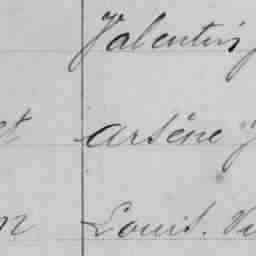 Valentin
Arsène
Louis. Vi